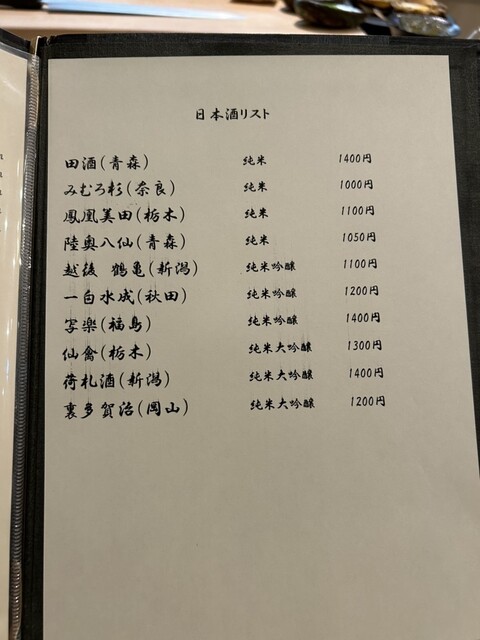 日本酒リスト
田酒(青森) 純米 1400円
みむろ杉(奈良) 純米 1000円
鳳凰美田(栃木) 純米 1100円
陸奥八仙(青森) 純米 1050円
越後 鶴亀(新潟) 純米吟醸 1100円
一白水成(秋田) 純米吟醸 1200円
写楽(福島) 純米吟醸 1400円
仙禽(栃木) 純米大吟醸 1300円
荷札酒(新潟) 純米大吟醸 1400円
裏多賀治(岡山) 純米大吟醸 1200円